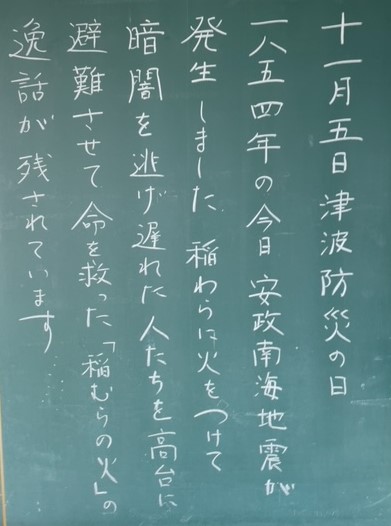 十一月五日 津波防災の日
一八五四年の今日 安政南海地震が
発生しました 稲わらに火をつけて
暗闇を逃げ遅れた人たちを高台に
避難させて命を救った「稲むらの火」の
逸話が残されています